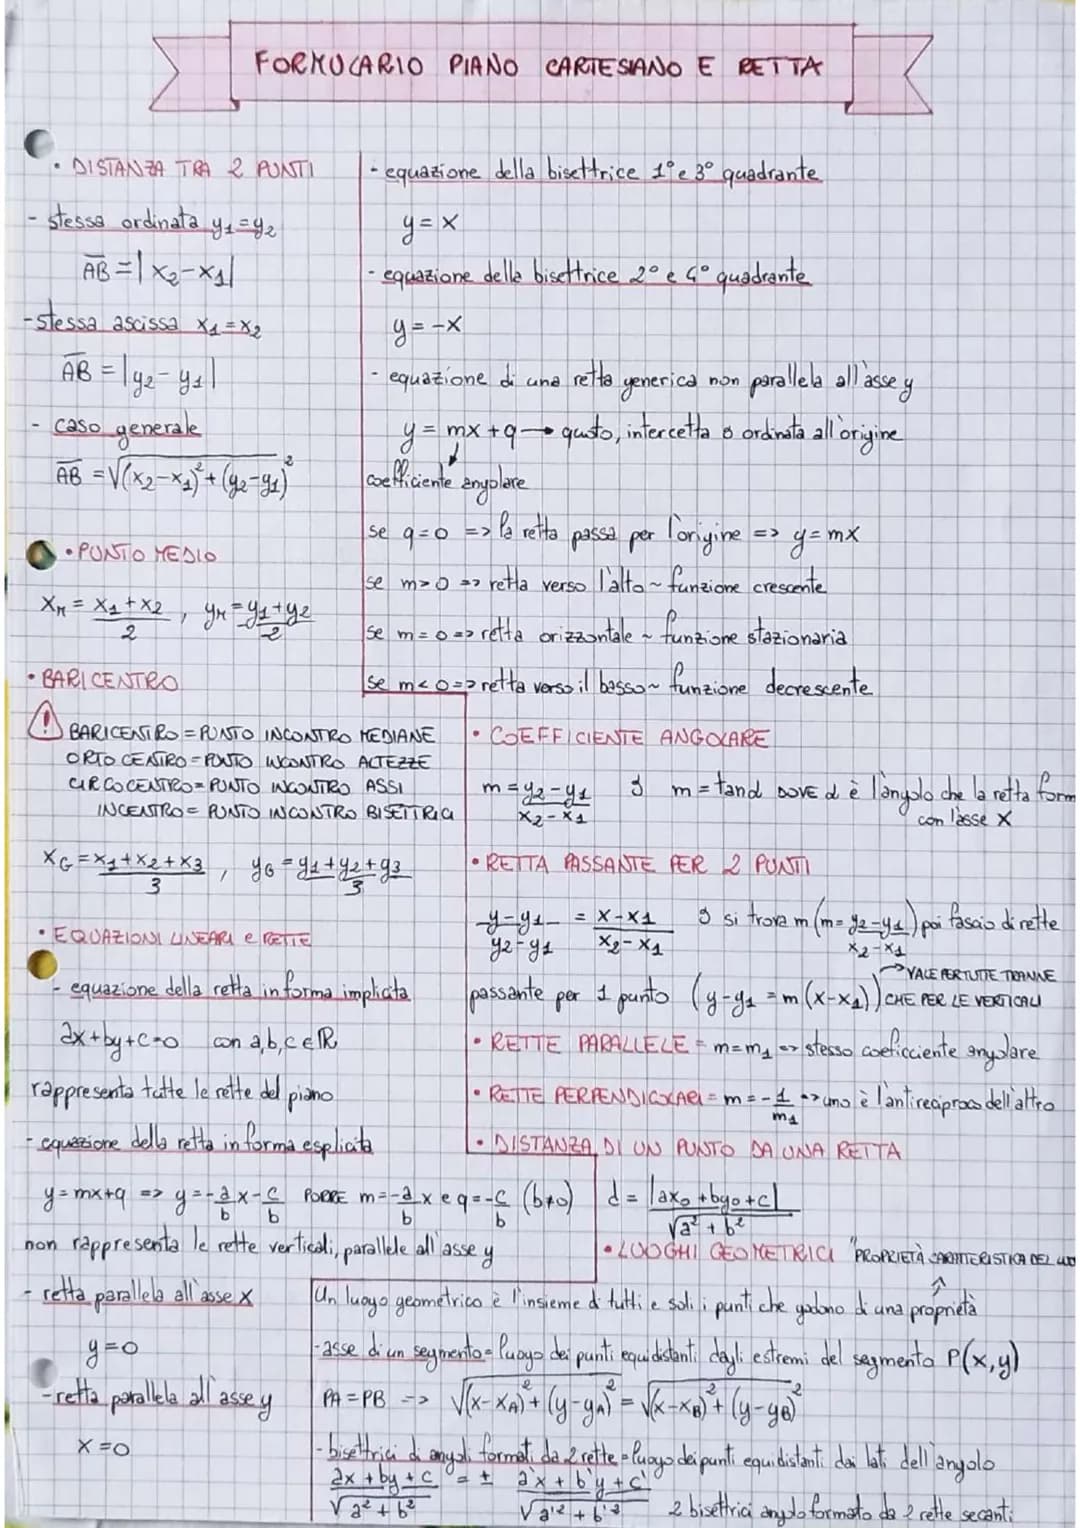 FORMULARIO PIANO CARTESIANO E RETTA
• DISTANZA TRA 2 PUNTI
- stessa ordinata y₁=y₂
AB = |x₂-x₁|
- stessa ascissa x₁=x₂
AB = |y₂-y₁|
- caso generale
AB = √(x₂-x₁)²+(y₂-y₁)²
• PUNTO MEDIO
x_M = x₁+x₂/2 , y_M = y₁+y₂/2
• BARICENTRO
! BARICENTRO = PUNTO INCONTRO MEDIANE
ORTOCENTRO = PUNTO INCONTRO ALTEZZE
CIRCOCENTRO = PUNTO INCONTRO ASSI
INCENTRO = PUNTO INCONTRO BISETTRICI
x_G = x₁+x₂+x₃/3 , y_G = y₁+y₂+y₃/3
• EQUAZIONI LINEARI e RETTE
- equazione della retta in forma implicita
ax+by+c=0 con a,b,c∈ℝ
rappresenta tutte le rette del piano
- equazione della retta in forma esplicita
y=mx+q => y=-a/b x-c/b PORRE m=-a/b x e q=-c/b (b≠0)
non rappresenta le rette verticali, parallele all'asse y
- retta parallela all'asse x
y=0
- retta parallela all'asse y
x=0
- equazione della bisettrice 1° e 3° quadrante
y = x
- equazione della bisettrice 2° e 4° quadrante
y = -x
- equazione di una retta generica non parallela all'asse y
y = mx+q → quoto, intercetta o ordinata all'origine
coefficiente angolare
se q=0 => la retta passa per l'origine => y=mx
se m>0 => retta verso l'alto ~ funzione crescente
se m=0 => retta orizzontale ~ funzione stazionaria
se m<0 => retta verso il basso ~ funzione decrescente
• COEFFICIENTE ANGOLARE
m = y₂-y₁/x₂-x₁ o m = tanα DOVE α è l'angolo che la retta form
con l'asse x
• RETTA PASSANTE PER 2 PUNTI
y-y₁/y₂-y₁ = x-x₁/x₂-x₁ o si trova m (m=y₂-y₁/x₂-x₁) poi fascio di rette
→ VALE PER TUTTE TRANNE
passante per 1 punto (y-y₁=m(x-x₁)) CHE PER LE VERTICALI
• RETTE PARALLELE = m=m₁ => stesso coeficciente angolare
• RETTE PERPENDICOLARI = m=-1/m₁ => uno è l'antireciproco dell'altro
• DISTANZA DI UN PUNTO DA UNA RETTA
d = |ax₀+by₀+c|/√a²+b²
• LUOGHI GEOMETRICI "PROPRIETÀ CARATTERISTICA DEL
Un luogo geometrico è l'insieme di tutti e soli i punti che godono di una proprietà
- asse di un segmento = luogo dei punti equidistanti dagli estremi del segmento P(x,y)
PA=PB => √(x-x_A)²+(y-y_A)² = √(x-x_B)²+(y-y_B)²
- bisettrici di angoli formati da 2 rette = luogo dei punti equidistanti dai lati dell'angolo
ax+by+c/√a²+b² = ± a'x+b'y+c'/√a'²+b'² 2 bisettrici angolo formato da 2 rette secanti